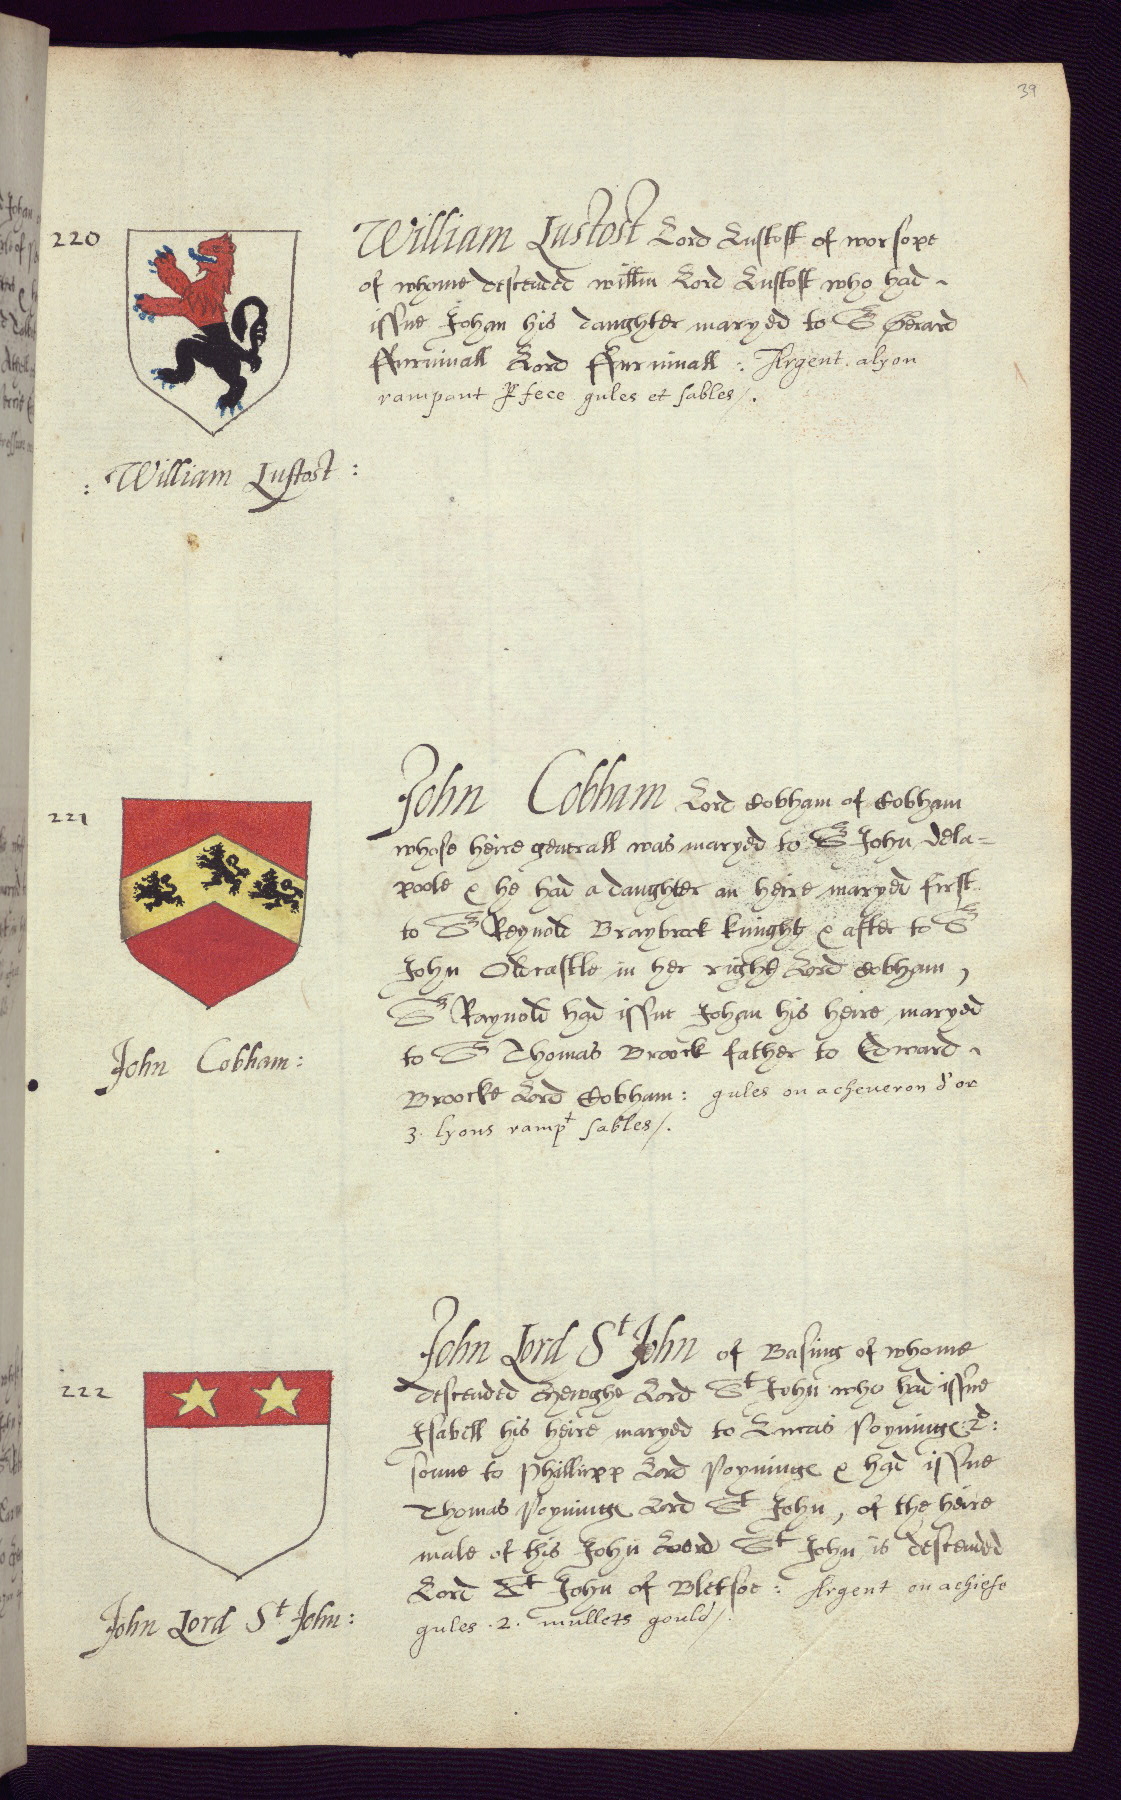 39
220
William Lustost Lord Lustost of worsope
of whome descended willm Lord Lustost who had
issue Johan his daughter maryed to Sr Gerard
ffurnivall Lord ffurnivall : Argent. a lyon
rampant p fece gules et sables /.
: William Lustost :
221
John Cobham Lord Cobham of Cobham
whose heire generall was maryed to Sr John dela=
poole & he had a daughter an heire maryed first
to Sr Reynold Braybrock knight & after to Sr
John Oldcastle in her right Lord Cobham,
Sr Raynold had issue Johan his heire maryed
to Sr Thomas Broock father to Edward
Broocke Lord Cobham : gules on a cheueron d'or
3. lyons rampt sables /.
John Cobham :
222
John Lord St John of Basing of whome
descended Hewghe Lord St John who had issue
Isabell his heire maryed to Lucas Poyninge 2d:
sonne to Phillipp Lord Poyninge & had issue
Thomas Poyninge Lord St John, of the heire
male of this John Lord St John is descended
Lord St John of Bletsoe : Argent on a chiefe
gules .2. mullets gould /.
John Lord St John :